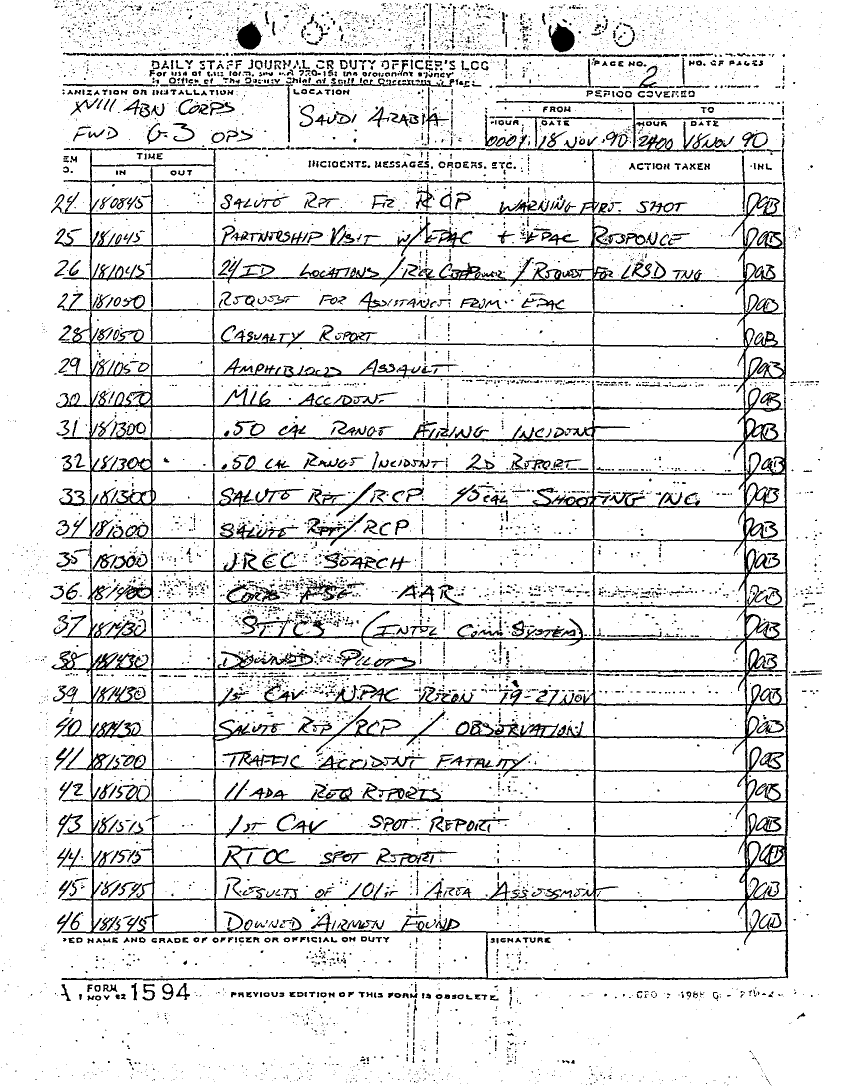 DAILY STAFF JOURNAL OR DUTY OFFICER'S LOG
For use of this form, see AR 220-15; the proponent agency
is Office of The Deputy Chief of Staff for Operations & Plans
PAGE NO.
2
NO. OF PAGES
ANIZATION OR INSTALLATION
XVIII ABN CORPS
FWD G-3 OPS
LOCATION
SAUDI ARABIA
PERIOD COVERED
FROM TO
HOUR DATE HOUR DATE
0001 18 NOV 90 2400 18 NOV 90
EM
O.
TIME
IN OUT
INCIDENTS, MESSAGES, ORDERS, ETC.
ACTION TAKEN
INL
24 180845 SALUTE RPT FR RCP WARNING FIRE SHOT
25 181045 PARTNERSHIP VISIT W/EPAC + EPAC RESPONCE
26 181045 24ID LOCATIONS / / REQUEST FOR LRSD TNG
27 181050 REQUEST FOR ASSISTANCE FROM EPAC
28 181050 CASUALTY REPORT
29 181050 AMPHIBIOUS ASSAULT
30 181050 M16 ACCIDENT
31 181300 .50 CAL RANGE FIRING INCIDENT
32 181300 .50 CAL RANGE INCIDENT 2D REPORT
33 181300 SALUTE RPT/RCP 45 CAL SHOOTING INC.
34 181300 SALUTE RPT/RCP
35 181300 JRCC SEARCH
36 181400 CORPS FSE AAR
37 181430 STICS (INTEL COMM SYSTEM)
38 181430 DOWNED PILOTS
39 181430 1ST CAV NPAC RECON 19-27 NOV
40 181430 SALUTE REP/RCP / OBSERVATION
41 181500 TRAFFIC ACCIDENT FATALITY
42 181500 11 ADA REQ REPORTS
43 181515 1ST CAV SPOT REPORT
44 181515 RTOC SPOT REPORT
45 181545 RESULTS OF 101st AREA ASSESSMENT
46 181545 DOWNED AIRMEN FOUND
PED NAME AND GRADE OF OFFICER OR OFFICIAL ON DUTY
SIGNATURE
A FORM 1 NOV 62 1594
PREVIOUS EDITION OF THIS FORM IS OBSOLETE.